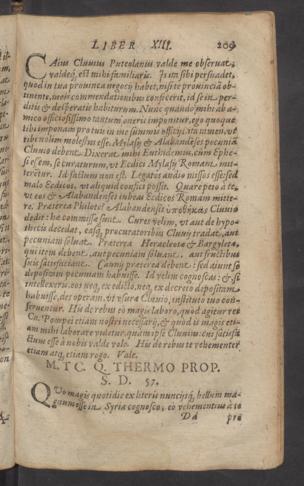 LIBER XIII. 209
CAius Cluuius Puteolanus valde me obseruat,
valdeq́; est mihi familiaris. Is ita sibi persuadet,
quod in tua prouincia negotij habet, nisi te prouincia ob-
tinente, meis commendationibus confecerit, id se in per-
ditis & desperatis habiturum. Nunc quando mihi ab a-
mico officiosissimo tantum oneris imponitur, ego quoque
tibi imponam pro tuis in me summis officijs, ita tamen, vt
tibi nolim molestus esse. Mylasij & Alabandenses pecuniã
Cluuio debent. Dixerat mihi Euthidemus, cum Ephe-
si essem, se curaturum, vt Ecdici Mylasij Romam mit-
terētur. Id factum non est. Legatos audio missos esse: sed
malo Ecdicos, vt aliquid confici possit. Quare peto à te,
vt eos & Alabandenses iubeas Ecdicos Romam mitte-
re. Præterea Philotes Alabandensis ὑποθήκας Cluuio
dedit: hæ commissæ sunt. Cures velim, vt aut de hypo-
thecis decedat, easq́; procuratoribus Cluuij tradat, aut
pecuniam soluat. Præterea Heracleotæ & Bargyletæ,
qui item debent, aut pecuniam soluant, aut fructibus
suis satisfaciant. Caunij præterea debent: sed aiunt se
depositam pecuniam habuisse. Id velim cognoscas: & si
intellexeris eos neq́; ex edicto, neq́; ex decreto depositam
habuisse, des operam, vt vsuræ Cluuio, instituto tuo con-
seruentur. His de rebus eo magis laboro, quod agitur res
Cn. Pompei etiam nostri necessarij, & quod is magis eti-
am mihi laborare videtur, quàm ipse Cluuius: cui satisfa-
ctum esse à nobis valde volo. His de rebus te vehementer
etiam atq́; etiam rogo. Vale.
M. T. C. Q. THERMO PROP.
S. D. 57.
QVo magis quotidie ex literis nuncijsq́; bellum ma-
gnum esse in Syria cognosco, eo vehementius à te
Dd pro